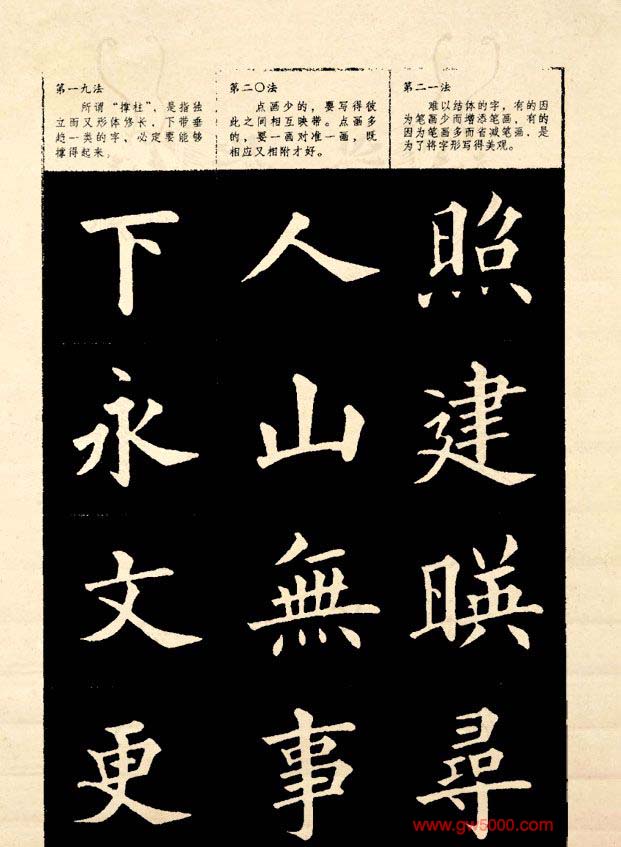 第一九法
所谓“撑柱”，是指独
立而又形体修长，下带垂
趋一类的字、必定要能够
撑得起来。
第二〇法
点画少的，要写得彼
此之间相互映带。点画多
的，要一画对准一画，既
相应又相附才好。
第二一法
难以结体的字，有的因
为笔画少而增添笔画，有的
因为笔画多而省减笔画，是
为了将字形写得美观。
下
永
文
更
人
山
無
事
照
建
暎
尋
www.gw5000.com